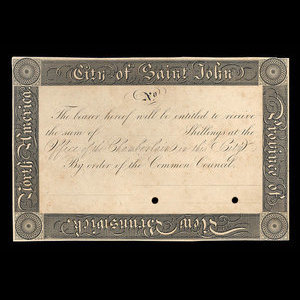 City of Saint John
No.
The bearer hereof will be entitled to receive
the sum of Shillings at the
Office of the Chamberlain in the City
By order of the Common Council.
North America
Province of
New Brunswick